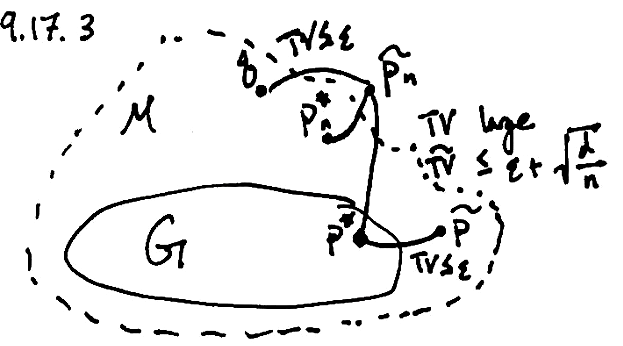 9.17.3
TV ≤ ε
q
p̃ₙ
M
p*ₙ
TV large
T̃V ≤ ε + √(d/n)
G
p*
p̃
TV ≤ ε